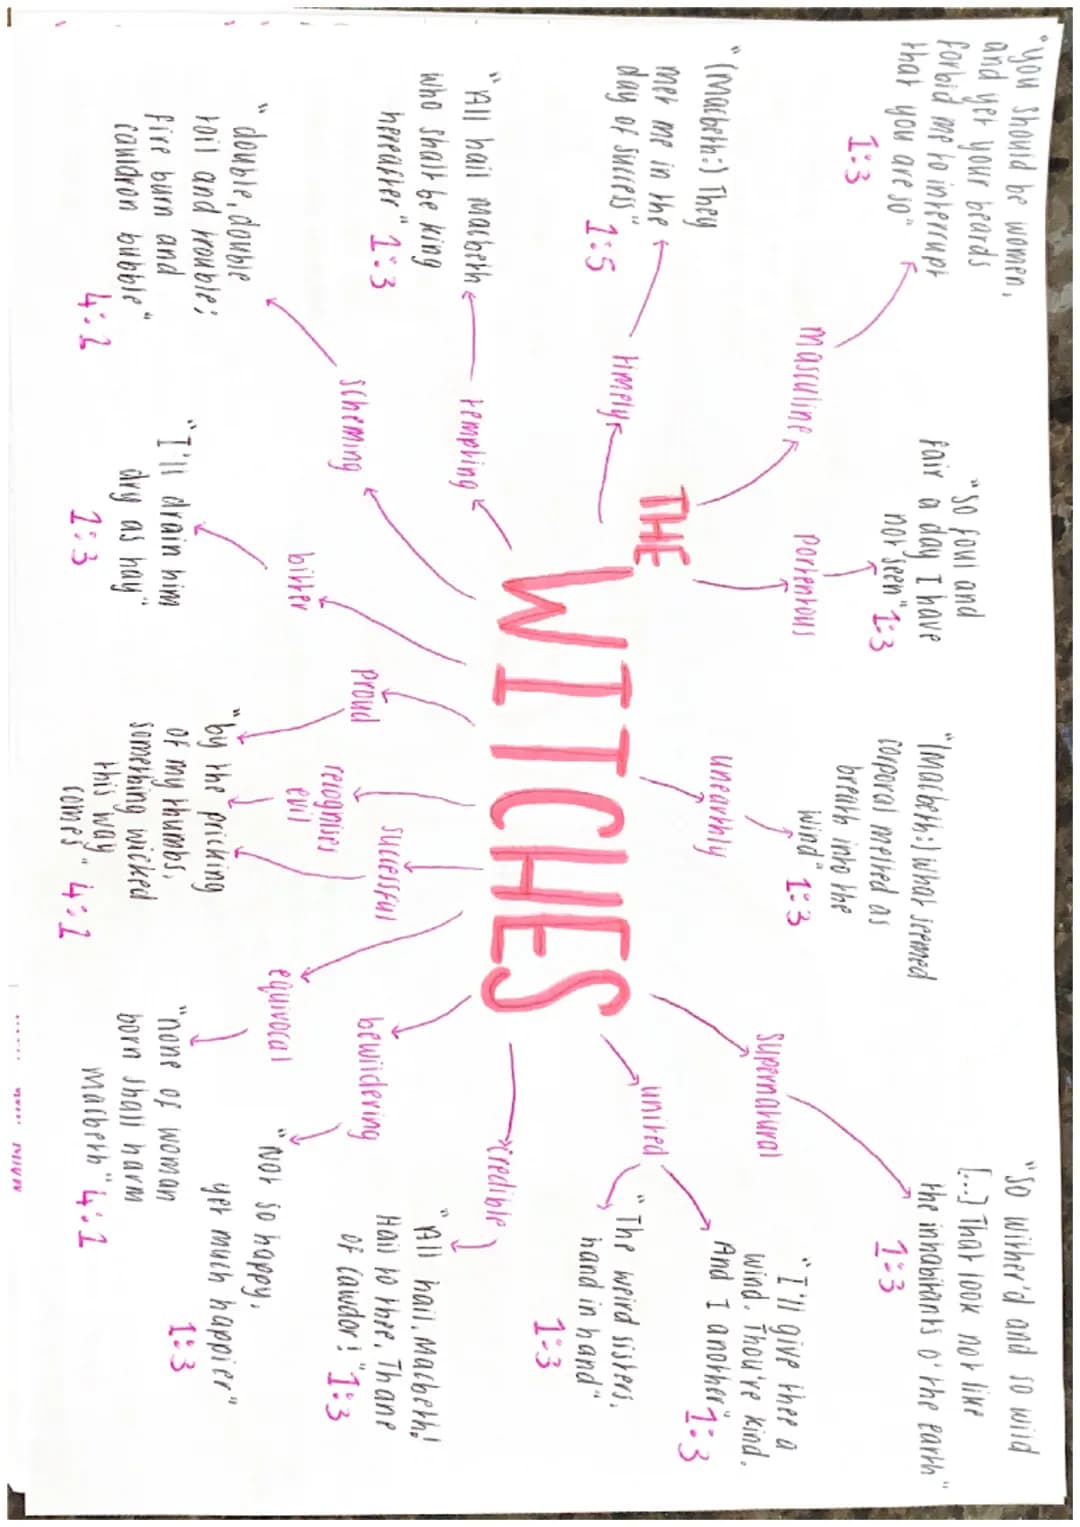 "You should be women,
and yet your beards
forbid me to interrupt
that you are so"
1:3
masculine
"So foul and
fair a day I have
not seen" 1:3
portentous
"(Macbeth:) what seemed
corporal melted as
breath into the
wind" 1:3
unearthly
"So wither'd and so wild
[...] That look not like
the inhabitants o' the earth"
1:3
supernatural
"(Macbeth:) They
met me in the
day of success"
1:5
timely
THE
WITCHES
united
"I'll give thee a
wind. Thou're kind.
And I another"
1:3
"The weird sisters,
hand in hand"
1:3
"All hail macbeth
who shalt be king
hereafter" 1:3
tempting
credible
"All hail, Macbeth!
Hail to thee, Thane
of Cawdor!" 1:3
"double, double
toil and trouble;
fire burn and
cauldron bubble"
4:1
scheming
"I'll drain him
dry as hay"
1:3
bitter
proud
recognises
evil
successful
"by the pricking
of my thumbs,
something wicked
this way
comes" 4:1
equivocal
"none of woman
born shall harm
macbeth" 4:1
bewildering
"Not so happy,
yet much happier"
1:3